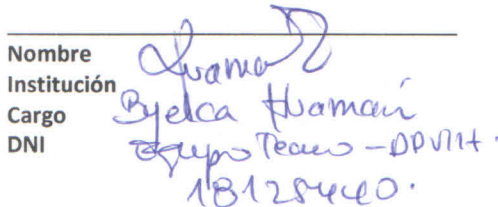 Nombre
Institución
Cargo Byelca Huamán
DNI Equipo Tecnico - DPVMH.
18128440.